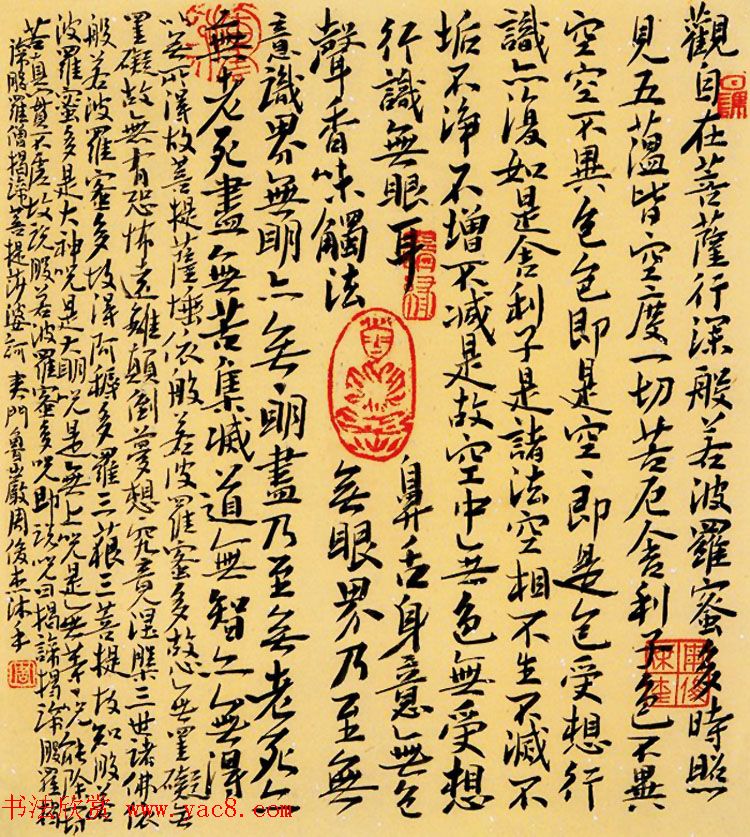 觀自在菩薩行深般若波羅蜜多時照
見五蘊皆空度一切苦厄舍利子色不異
空空不異色色即是空、即是色受想行
識亦復如是舍利子是諸法空相不生不滅不
垢不淨不增不減是故空中無色無受想
行識無眼耳鼻舌身意無色
聲香味觸法無眼界乃至無
意識界無明亦無、明盡乃至無老死亦
無老死盡無苦集滅道無智亦無得
以無所得故菩提薩埵依般若波羅蜜多故心無罣礙無
罣礙故無有恐怖遠離顛倒夢想究竟涅槃三世諸佛依
般若波羅蜜多故得阿耨多羅三藐三菩提故知般若
波羅蜜多是大神咒是大明咒是無上咒是無等、咒能除一切
苦真實不虛故說般若波羅蜜多咒即說咒曰揭諦揭諦般羅揭
諦般羅僧揭諦菩提莎婆訶 夷門魯山嚴周俊杰沐手
周
书法欣赏 www.yac8.com